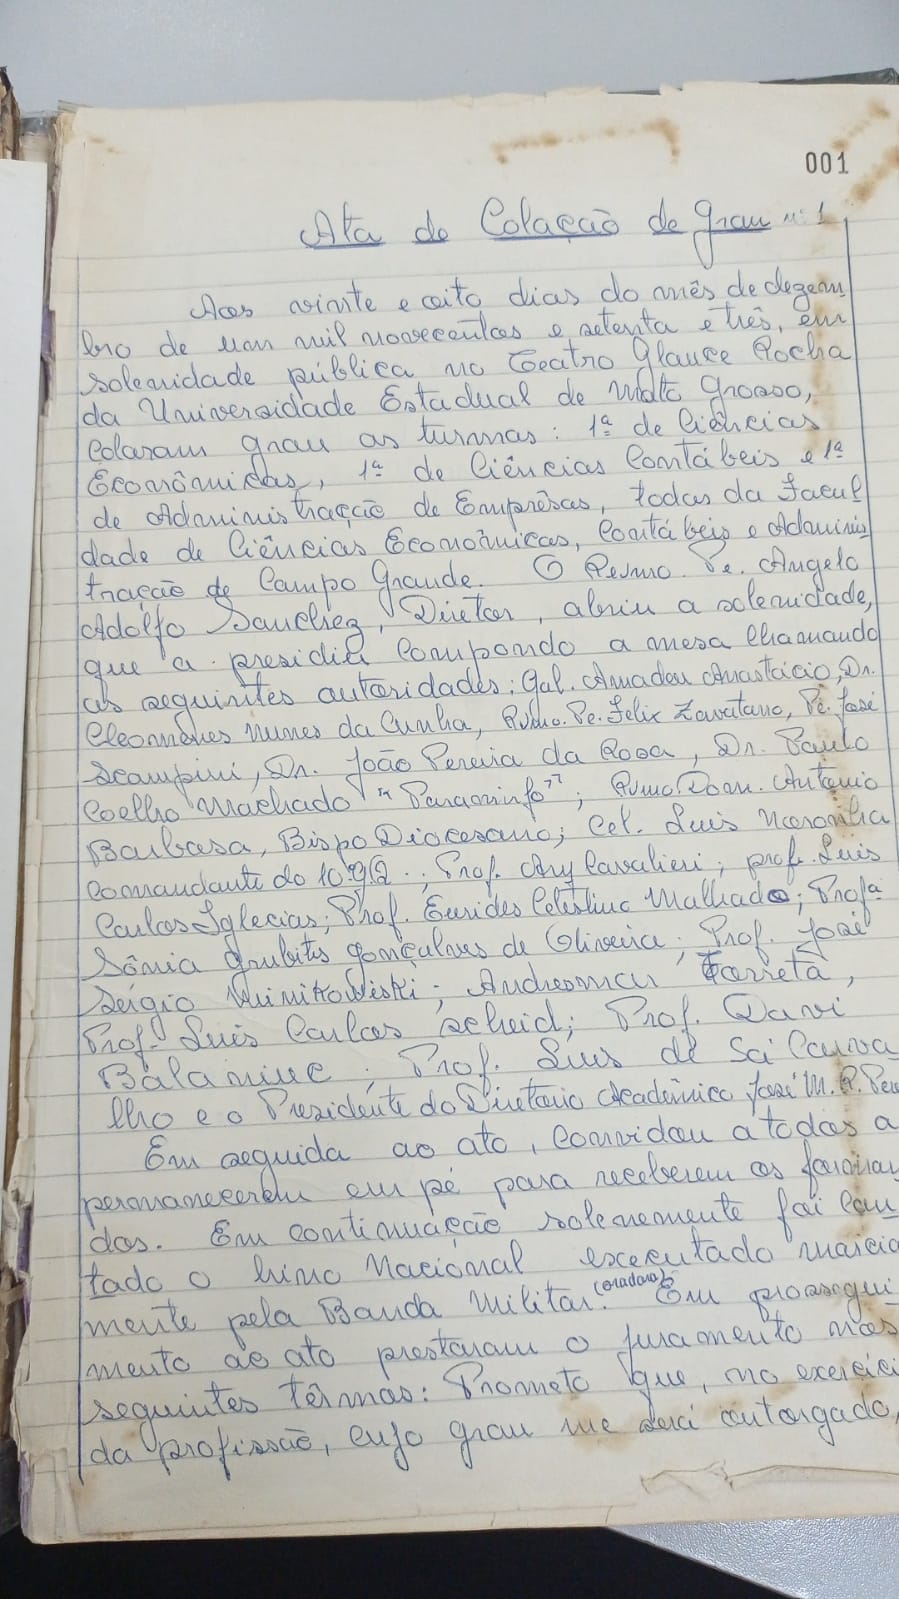 001
Ata de Colação de grau nº 1
Aos vinte e oito dias do mês de dezem
bro de um mil novecentos e setenta e três, em
solenidade pública no Teatro Glauce Rocha
da Universidade Estadual de Mato Grosso,
colaram grau as turmas: 1ª de Ciências
Econômicas, 1ª de Ciências Contábeis e 1ª
de Administração de Emprêsas, todas da Facul
dade de Ciências Econômicas, Contábeis e Adminis
tração de Campo Grande. O Revmo. Pe. Angelo
Adolfo Sanchez, Diretor, abriu a solenidade,
que a presidiu compondo a mesa chamando
as seguintes autoridades: Gal. Amadeu Anastácio, Dr.
Cleomenes Nunes da Cunha, Rvmo. Pe. Felix Zavatano, Pe. José
Scampini, Dr. João Pereira da Rosa, Dr. Paulo
Coelho Machado "Paraninfo"; Rvmo Dom. Antonio
Barbosa, Bispo Diocesano; Cel. Luis Noronha
comandante do 10º; Prof. Ary Cavalieri; prof. Luis
Carlos Iglecias; Prof. Eurides Celestino Malhado; Profª
Sônia grubits gonçalves de Oliveira; Prof. José
Sérgio; Andreomar,
Prof. Luis Carlos Scheid; Prof. Davi
Balaniuc; Prof. Luis de Sá Carva
lho e o Presidente do Diretorio Academico José M. R.
Em seguida ao ato, convidou a todos a
permanecerem em pé para receberem os forman
dos. Em continuação solenemente foi can
tado o hino Nacional executado
mente pela Banda Militar. (oradora) Em prossegui
mento ao ato prestaram o juramento nos
seguintes têrmos: Prometo que, no exercíci
da profissão, cujo grau me será outorgado,